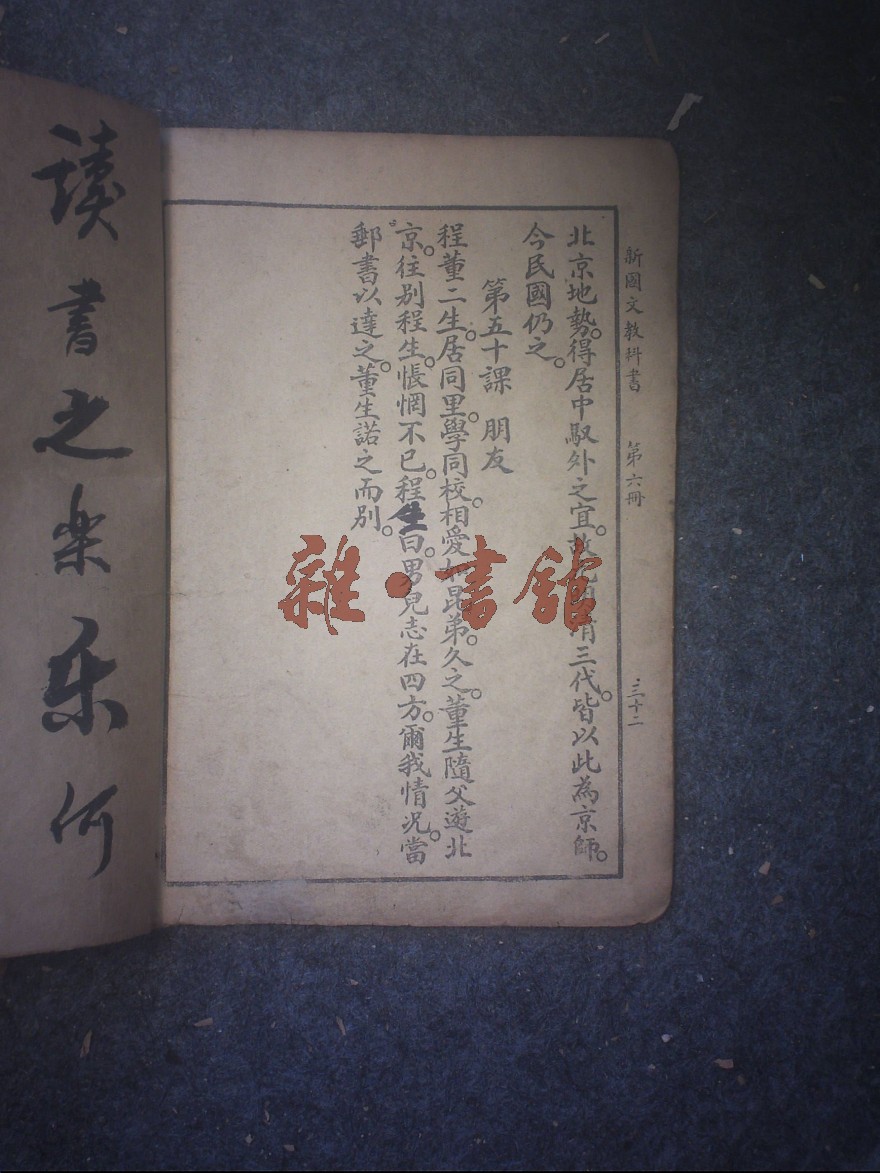 新國文教科書　第六冊　三十二
北京地勢。得居中馭外之宜。故元明清三代。皆以此為京師。
今民國仍之。
第五十課　朋友
程董二生。居同里。學同校。相愛如昆弟。久之。董生隨父遊北
京。往別程生。程生悵惘不已。程生曰。男兒志在四方。爾我情況。當
郵書以達之。董生諾之而別。
讀書之樂樂何
雜·書館